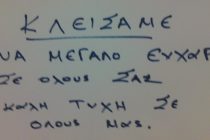 ΚΛΕΙΣΑΜΕ
ΝΑ ΜΕΓΑΛΟ ΕΥΧΑΡ
ΣΕ ΟΛΟΥΣ ΣΑΣ
ΚΑΛΗ ΤΥΧΗ ΣΕ
ΟΛΟΥΣ ΜΑΣ.